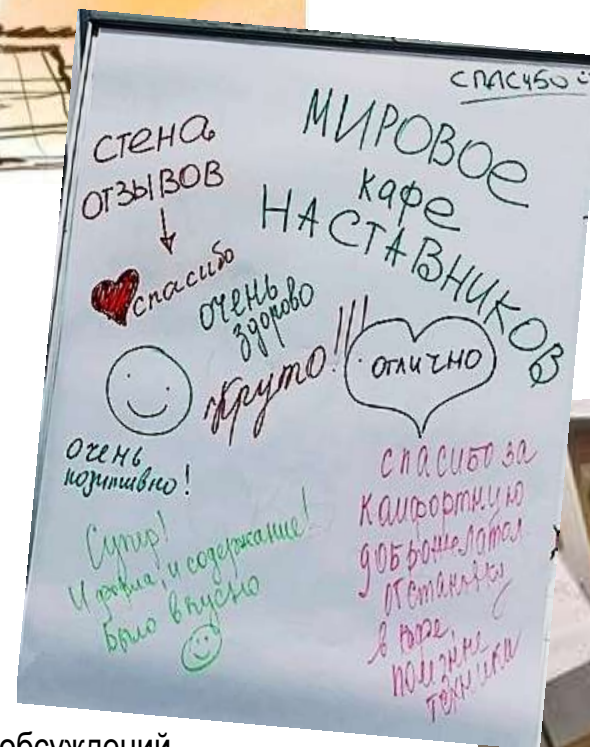 СПАСИБО
МИРОВОЕ
кафе
НАСТАВНИКОВ
СТЕНА
ОТЗЫВОВ
спасибо
очень
здорово
Круто!!!
отлично
очень
позитивно!
Супер!
И форма, и содержание!
Было вкусно
спасибо за
комфортную
доброжелател
обстановку
в кафе,
полезные
техники
обсуждений